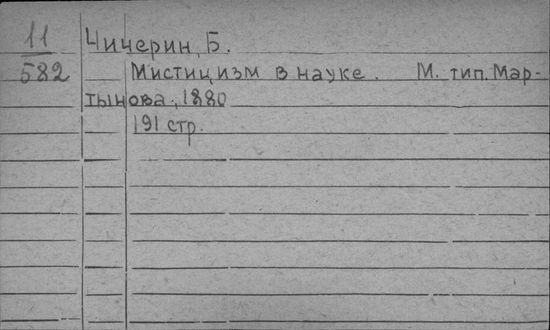 11 Чичерин, Б.
582 Мистицизм в науке. М. тип. Мар-
тынова, 1880
191 стр.